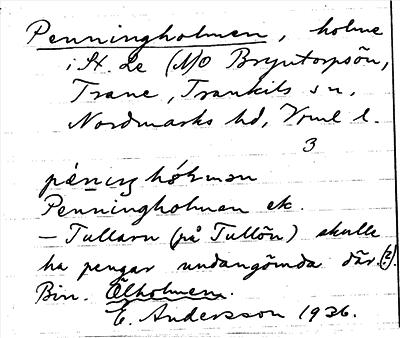 Penningholmen, holme
i St. Le (N)O Bryntorpsön,
Trane, Trankils sn,
Nordmarks hd, Vrml l.
3
pæ̀niŋhól̥mən
Penningholmen ek.
– Tullarn (på Tullön) skulle
ha pengar undangömda där. (2).
Bin. Ölholmen.
E. Andersson 1936.